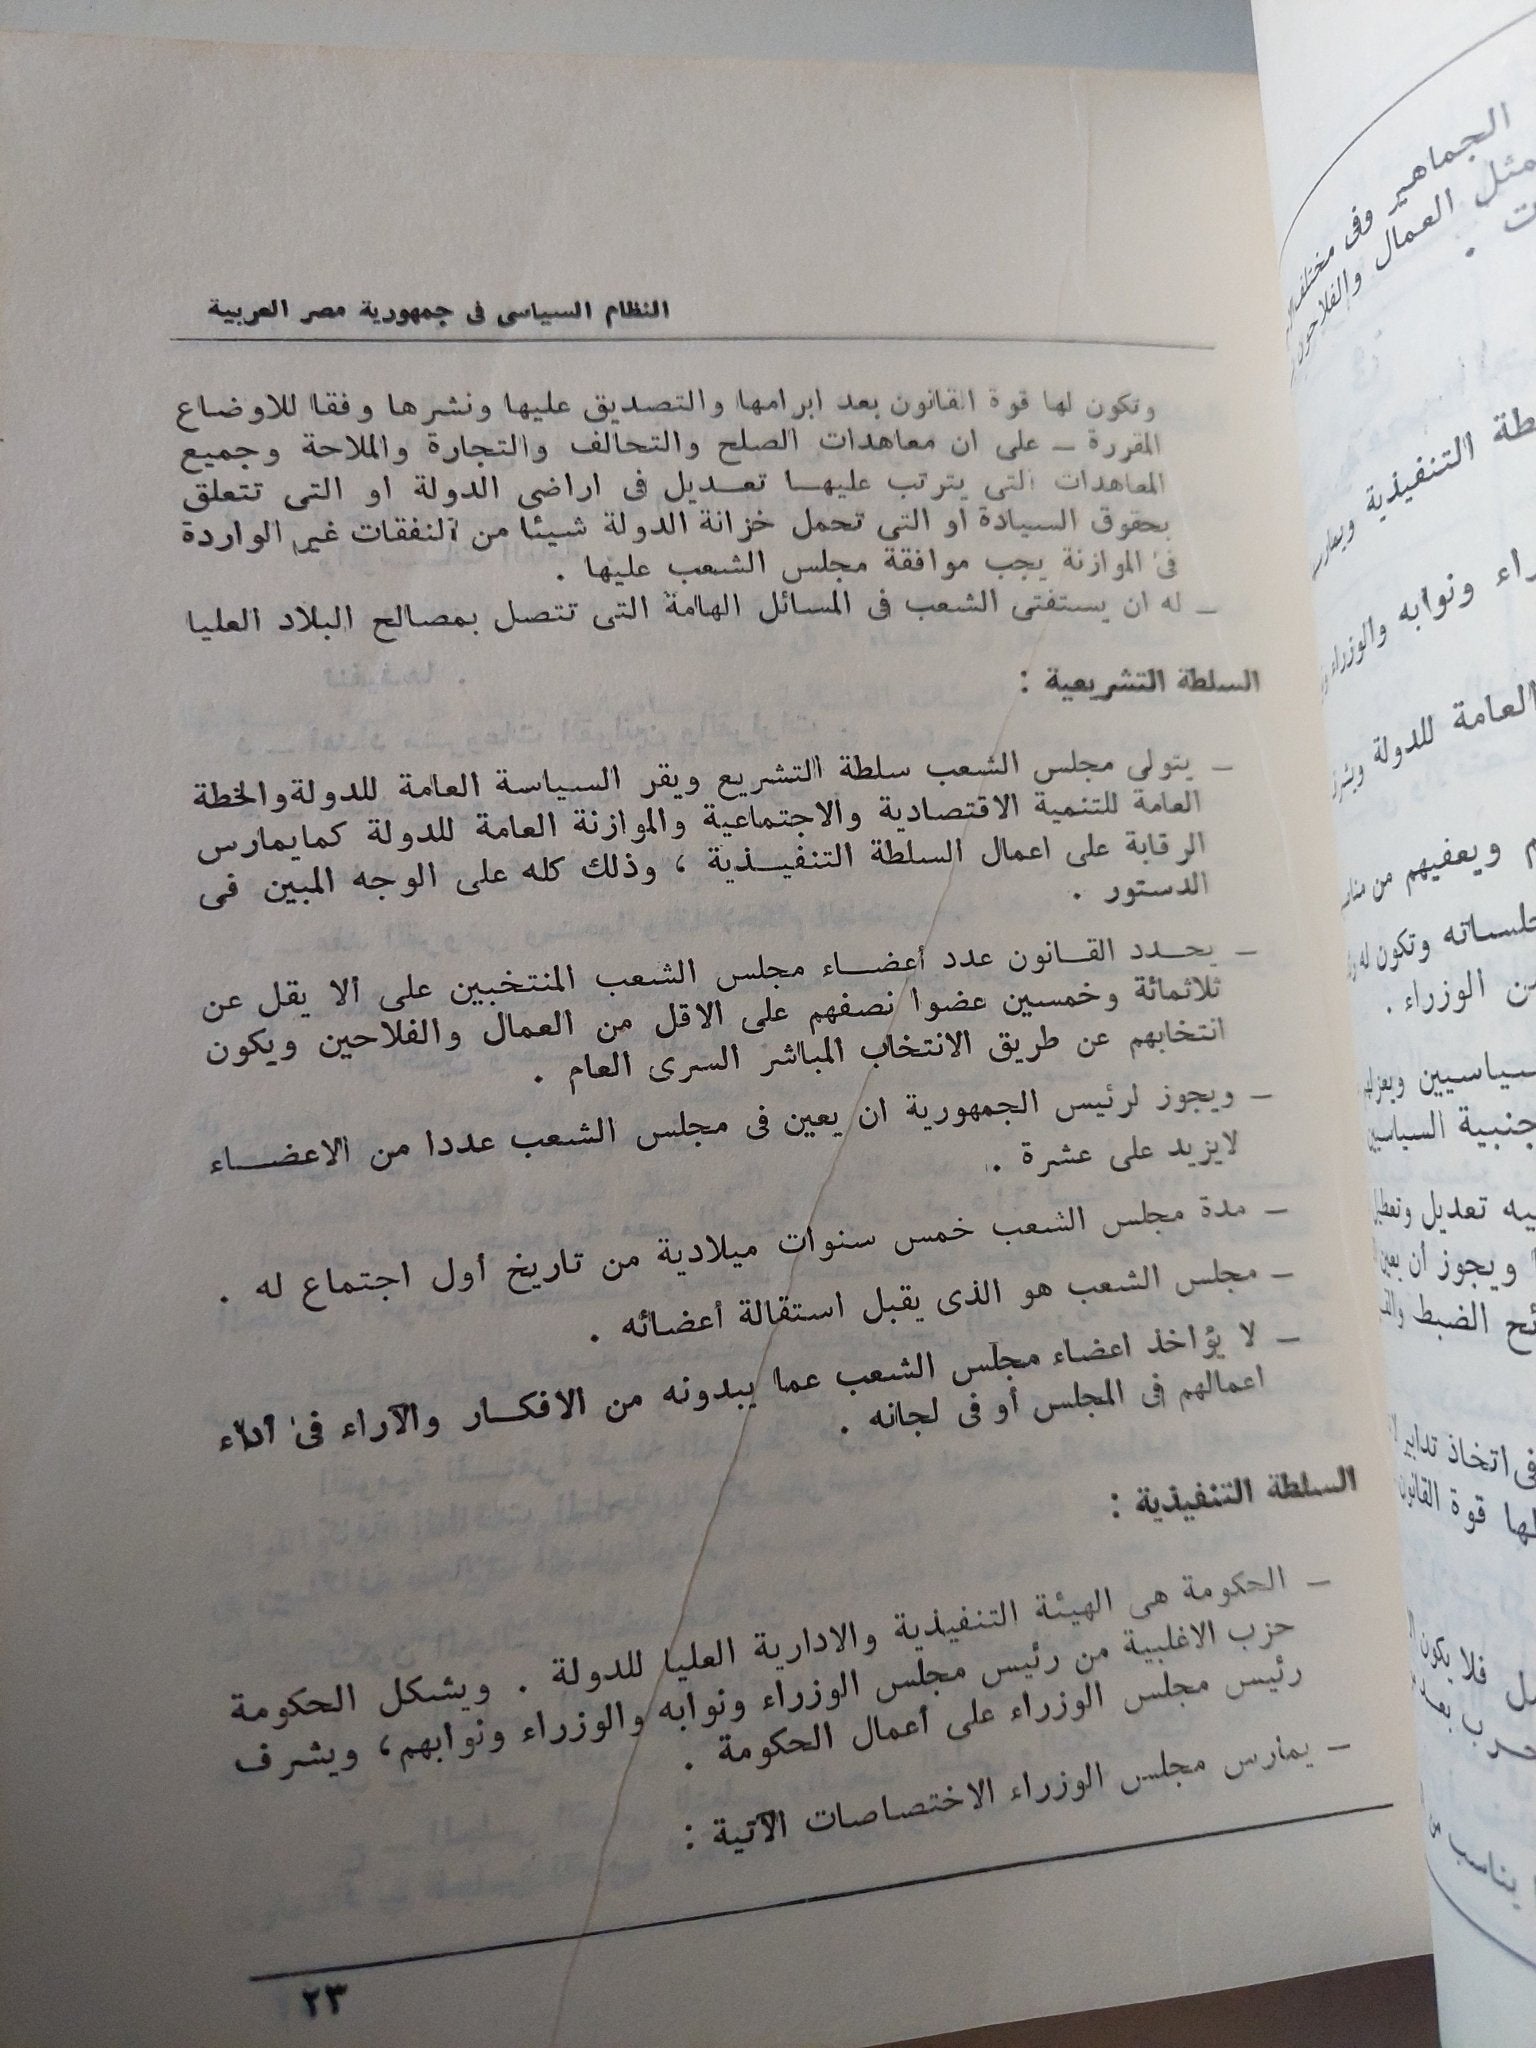 النظام السياسى فى جمهورية مصر العربية
وتكون لها قوة القانون بعد ابرامها والتصديق عليها ونشرها وفقا للاوضاع
المقررة ــ على ان معاهدات الصلح والتحالف والتجارة والملاحة وجميع
المعاهدات التى يترتب عليهـا تعـديل فى اراضى الدولة او التى تتعلق
بحقوق السيادة او التى تحمل خزانة الدولة شيئا من النفقات غير الواردة
فى الموازنة يجب موافقة مجلس الشعب عليها .
ــ له ان يستفتى الشعب فى المسائل الهامة التى تتصل بمصالح البلاد العليا
السلطة التشريعية :
ــ يتولى مجلس الشعب سلطة التشريع ويقر السياسة العامة للدولةوالخطة
العامة للتنمية الاقتصادية والاجتماعية والموازنة العامة للدولة كمايمارس
الرقابة على اعمال السلطة التنفيـذية ، وذلك كله على الوجه المبين فى
الدستور .
ــ يحـدد القـانون عدد أعضـاء مجلس الشعب المنتخبين على ألا يقل عن
ثلاثمائة وخمسين عضوا نصفهم على الاقل من العمال والفلاحين ويكون
انتخابهم عن طريق الانتخاب المباشر السرى العام .
ــ ويجوز لرئيس الجمهورية ان يعين فى مجلس الشعب عددا من الاعضـاء
لايزيد على عشرة .
ــ مدة مجلس الشعب خمس سنوات ميلادية من تاريخ أول اجتماع له .
ــ مجلس الشعب هو الذى يقبل استقالة أعضائه .
ــ لا يؤاخذ اعضاء مجلس الشعب عما يبدونه من الافكـار والآراء فى أداء
اعمالهم فى المجلس أو فى لجانه .
السلطة التنفيذية :
ــ الحكومة هى الهيئة التنفيذية والادارية العليا للدولة . ويشكل الحكومة
حزب الاغلبية من رئيس مجلس الوزراء ونوابه والوزراء ونوابهم، ويشرف
رئيس مجلس الوزراء على أعمال الحكومة .
ــ يمارس مجلس الوزراء الاختصاصات الآتية :
٢٣
الجماهير وفى مختلف
مثل العمال والفلاحون
التنفيذية
ونوابه والوزراء
العامة للدولة
ويعفيهم من
وتكون له
الوزراء .
السياسيين
السياسيين
تعديل
ويجوز أن يعين
الضبط
فى اتخاذ تدابير
لها قوة القانون
فلا يكون
يناسب من